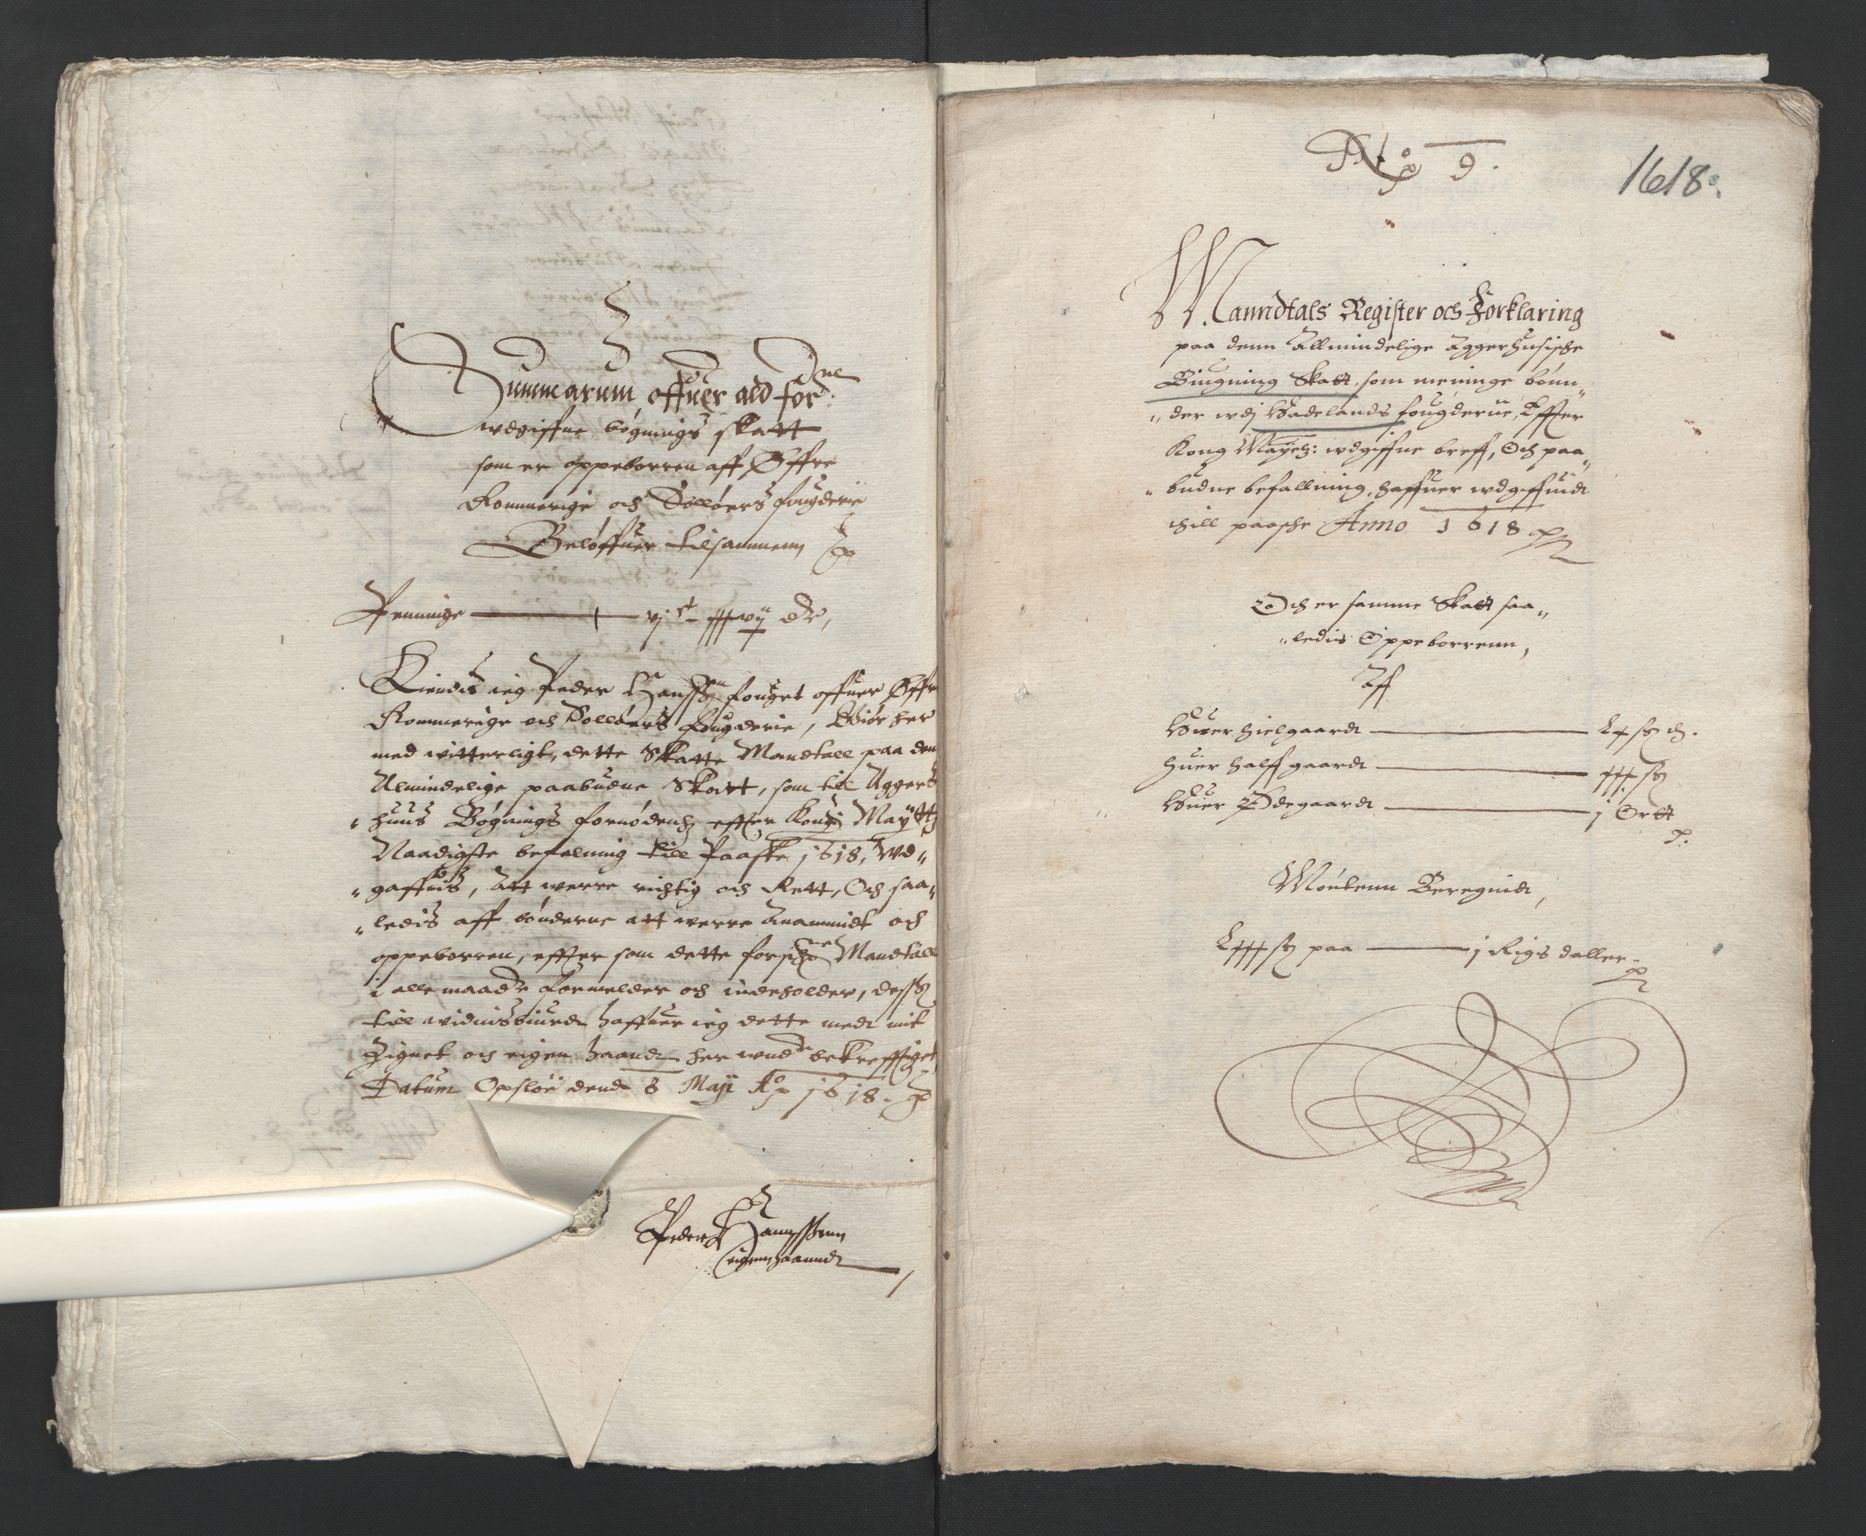 Summarum offuer ald for:ne
wdgiffne bögnings skatt
som er oppeborren aff Øffre
Rommerige och Sollöers fougderie
Belöffuer tilsammenn
Penninge vj st
Kiendis ieg Peder Hanssen fouget offuer Øffre
Rommerige och Sollöers fougderie, Giör her
med witterligt, dette Skatte Mandtall paa den
Almindelige paabudne Skatt, som till Aggers
huus Bögnings fornödenh effter Kong: Maytts
Naadigste befalning till Paaske 1618, wd„
„gaffuis, Att werre richtig och Rett, Och saa„
„ledis aff bönderne att werre Anammidt och
oppeborren, effter som dette forsch:ne Mandtall
i alle maade formelder och indeholder, dess
till widnisbiurd haffuer ieg dette med mit
Zignet och eigen haand her wnder bekrefftiget
Datum Opsloe dend 8 Maji Ao 1618.
Peder Hannssenn
eigennhaanndt
No 9.
1618.
Manndtals Register och Forklaring
paa denn Allmindelige Aggerhusische
Biugning Skatt, som meninge bönn„
„der wdj Hadelands fougderiie, Effter
Kong May:tz: wdgiffne breff, Och paa„
„budne befallning, haffuer wdgiffuidt
thill paasche Anno 1618
Och er samme Skatt saa„
„ledis Oppeborrenn,
Aff
Huer hielgaardt
huer halff gaardt
Huer Ødegaardt j Ortt
Möntenn Beregnidt,
paa j Rigs daller.